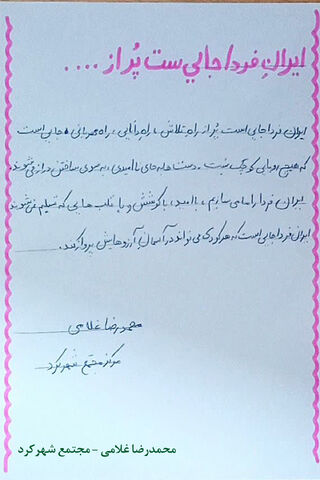 ایران فردا جایی ست پُر از ....
ایران فردا جایی است پر از راه تلاش، راه دانایی، راه مهربانی، جایی است
که هیچ رویایی کوچک نیست. دست های ناامیدی، به سوی ساختن دراز می شوند.
ایران فردا را ما می سازیم، با امید، با کوشش و با قلب هایی که تسلیم نمی شوند
ایران فردا جایی است که هر کودکی می تواند در آسمان آرزوهایش پرواز کند.
محمدرضا غلامی
مرکز مجتمع شهرکرد
محمدرضا غلامی - مجتمع شهرکرد